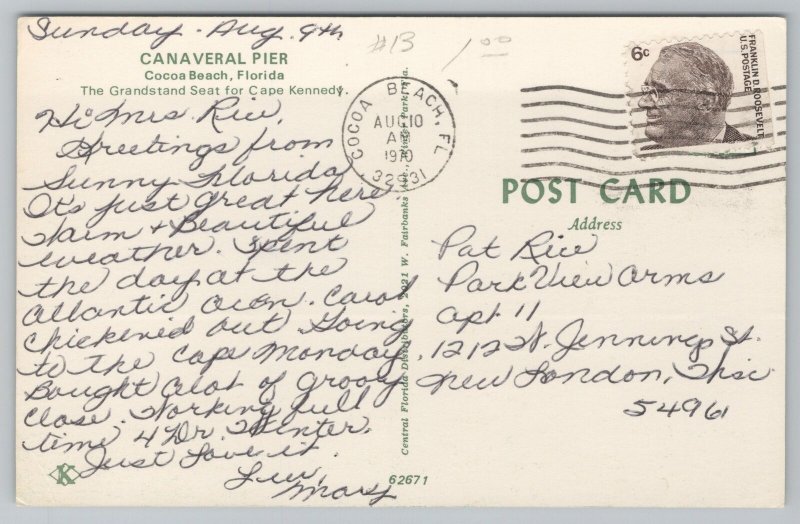 Sunday - Aug. 9th
#13
1 00
CANAVERAL PIER
Cocoa Beach, Florida
The Grandstand Seat for Cape Kennedy.
Hi Mrs. Rice,
Greetings from
Sunny Florida
It's just great here
Warm & Beautiful
weather. Spent
the day at the
Atlantic Ocen. Carol
chickened out. Going
to the Cape Monday.
Bought alot of groovy
close. Working full
time 4 Dr. Winter.
Just Love it.
Luv,
Mary
K
62671
Central Florida Distributors, 2021 W. Fairbanks Ave., Winter Park, Fla.
COCOA BEACH, FL
AUG 10
AM
1970
32931
6c
FRANKLIN D. ROOSEVELT
U.S. POSTAGE
POST CARD
Address
Pat Rice
Park View Arms
Apt 11
1212 W. Jennings St.
New London, Wisc
54961